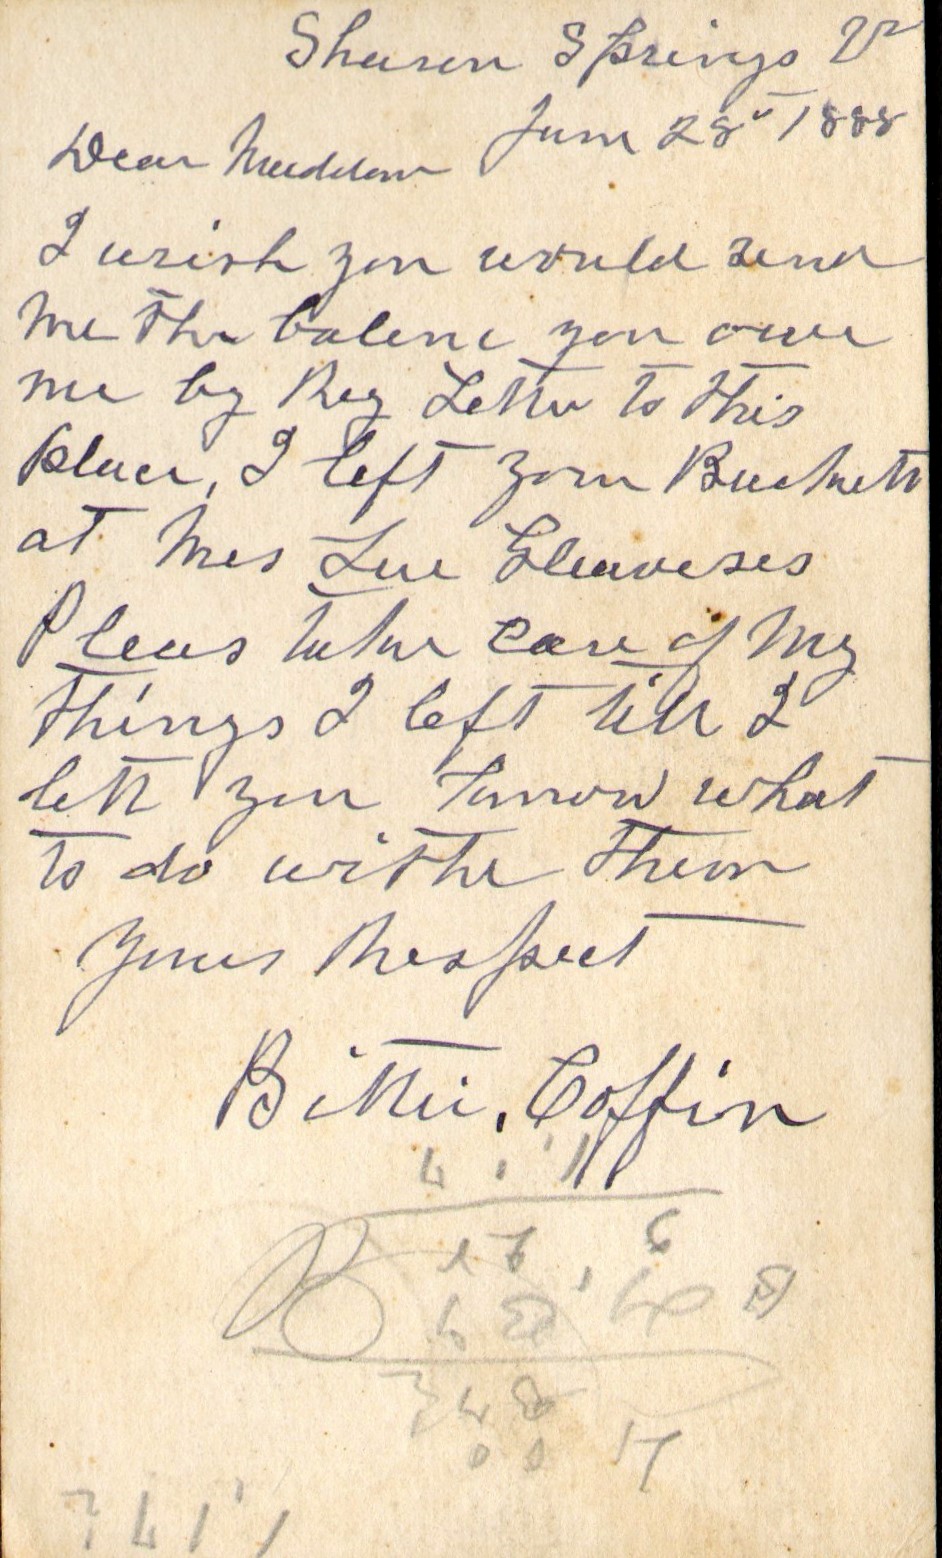 Sharon Springs Va
June 28" 1888
Dear Maddam
I wish you would send
me the balenc you owe
me by Reg Letter to this
place, I left your Buckett
at Mrs Lue Gleaveses
Pleas take care of My
things I left till I
lett you know what
to do withe them
yours Respect
Bittie. Coffin